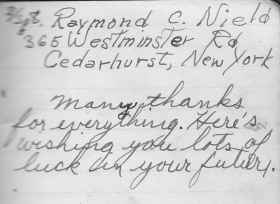 S/Sgt. Raymond C. Nield
365 Westminster Rd
Cedarhurst, New York
Many thanks
for everything. Here's
wishing you lots of
luck in your future.